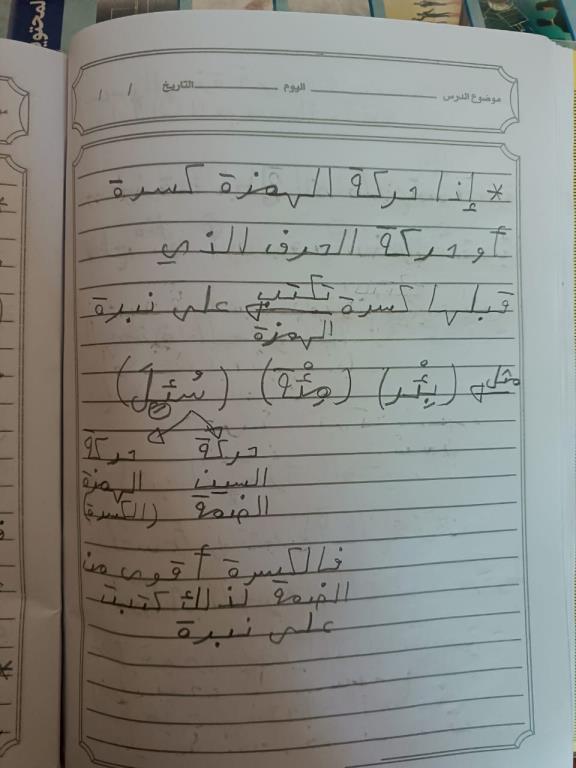 المحتوي
موضوع الدرس ـــــــ اليوم ـــــــ التاريخ / /
* إذا حركة الهمزة كسرة
أو حركة الحرف الذي
قبلها كسرة تكتب على نبرة
الهمزة
مثل (بِئْر) (مِئْة) (سُئِل)
حركة حركة
السين الهمزة
الضمة (الكسرة)
فالكسرة أقوى من
الضمة لذلك كتبت
على نبرة